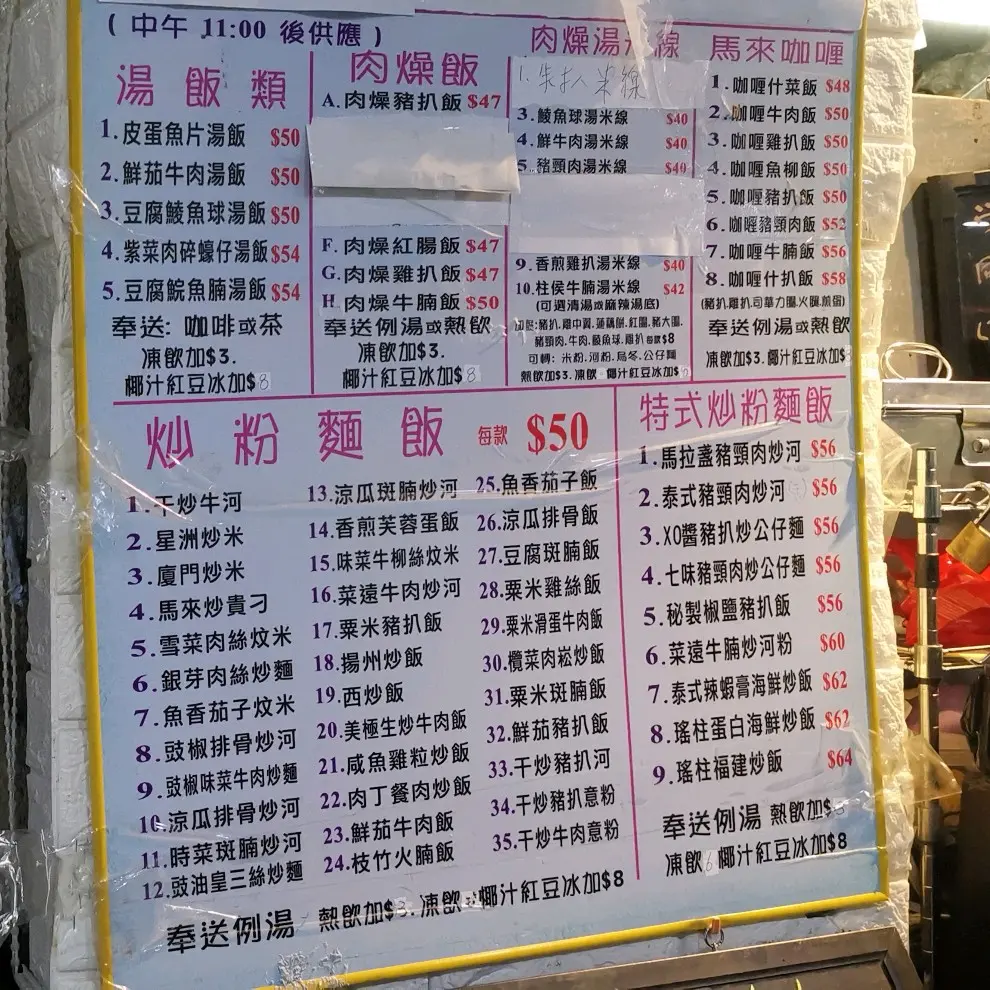 ( 中午 11:00 後供應 )
湯飯類
1.皮蛋魚片湯飯 $50
2.鮮茄牛肉湯飯 $50
3.豆腐鯪魚球湯飯 $50
4.紫菜肉碎蠔仔湯飯 $54
5.豆腐鯇魚腩湯飯 $54
奉送: 咖啡或茶
凍飲加$3.
椰汁紅豆冰加$8
肉燥飯
A.肉燥豬扒飯 $47
F.肉燥紅腸飯 $47
G.肉燥雞扒飯 $47
H.肉燥牛腩飯 $50
奉送例湯或熱飲
凍飲加$3.
椰汁紅豆冰加$8
肉燥湯 線
1. 米線
3.鯪魚球湯米線 $40
4.鮮牛肉湯米線 $40
5.豬頸肉湯米線 $40
9.香煎雞扒湯米線 $40
10.柱侯牛腩湯米線 $42
(可選清湯或麻辣湯底)
加配:豬扒.雞中翼.蓮藕餅.紅腸.豬大腸.
豬頸肉.牛肉.鯪魚球.雞扒 每款$8
可轉: 米粉.河粉.烏冬.公仔麵
熱飲加$3.凍飲 椰汁紅豆冰加$
馬來咖喱
1.咖喱什菜飯 $48
2.咖喱牛肉飯 $50
3.咖喱雞扒飯 $50
4.咖喱魚柳飯 $50
5.咖喱豬扒飯 $50
6.咖喱豬頸肉飯 $52
7.咖喱牛腩飯 $56
8.咖喱什扒飯 $58
(豬扒.雞扒.司華力腸.火腿.煎蛋)
奉送例湯或熱飲
凍飲加$3.椰汁紅豆冰加$
炒粉麵飯 每款 $50
1.干炒牛河
2.星洲炒米
3.廈門炒米
4.馬來炒貴刁
5.雪菜肉絲炆米
6.銀芽肉絲炒麵
7.魚香茄子炆米
8.豉椒排骨炒河
9.豉椒味菜牛肉炒麵
10.涼瓜排骨炒河
11.時菜斑腩炒河
12.豉油皇三絲炒麵
13.涼瓜斑腩炒河
14.香煎芙蓉蛋飯
15.味菜牛柳絲炆米
16.菜遠牛肉炒河
17.粟米豬扒飯
18.揚州炒飯
19.西炒飯
20.美極生炒牛肉飯
21.咸魚雞粒炒飯
22.肉丁餐肉炒飯
23.鮮茄牛肉飯
24.枝竹火腩飯
25.魚香茄子飯
26.涼瓜排骨飯
27.豆腐斑腩飯
28.粟米雞絲飯
29.粟米滑蛋牛肉飯
30.欖菜肉崧炒飯
31.粟米斑腩飯
32.鮮茄豬扒飯
33.干炒豬扒河
34.干炒豬扒意粉
35.干炒牛肉意粉
奉送例湯 熱飲加$3.凍飲 椰汁紅豆冰加$8
特式炒粉麵飯
1.馬拉盞豬頸肉炒河 $56
2.泰式豬頸肉炒河 $56
3.XO醬豬扒炒公仔麵 $56
4.七味豬頸肉炒公仔麵 $56
5.秘製椒鹽豬扒飯 $56
6.菜遠牛腩炒河粉 $60
7.泰式辣蝦膏海鮮炒飯 $62
8.瑤柱蛋白海鮮炒飯 $62
9.瑤柱福建炒飯 $64
奉送例湯 熱飲加$3
凍飲6 椰汁紅豆冰加$8